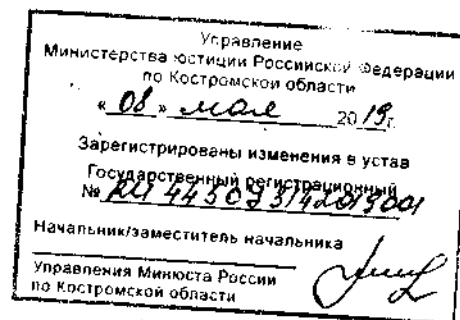 Управление
Министерства юстиции Российской Федерации
по Костромской области
« 08 » мая 2019 г.
Зарегистрированы изменения в устав
Государственный регистрационный
№ RU 445073142019001
Начальник/заместитель начальника
Управления Минюста России
по Костромской области